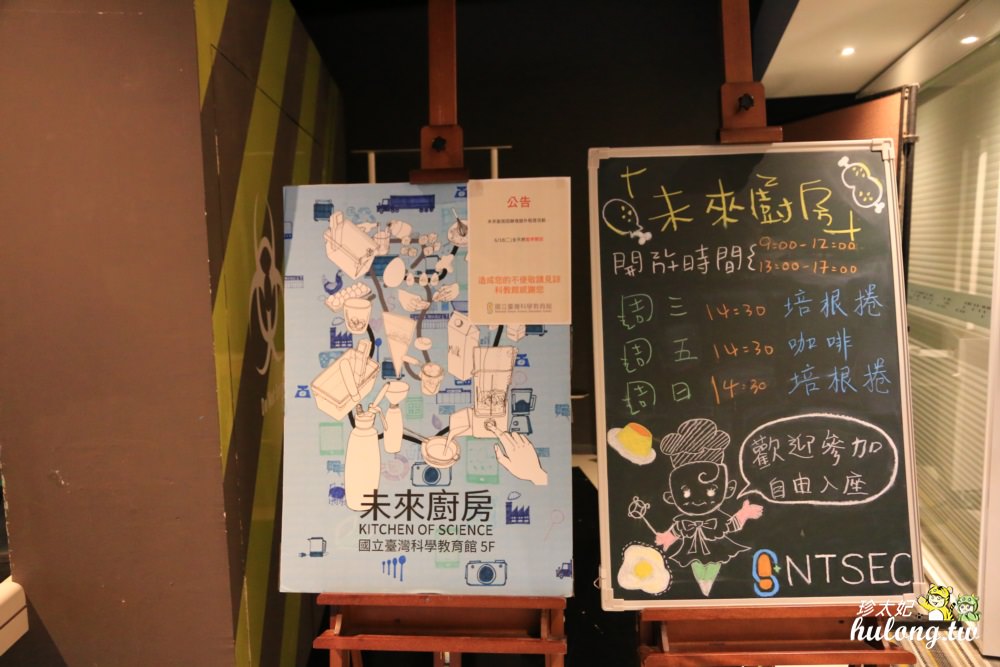 公告
造成您的不便敬請見諒
科教館感謝您
國立臺灣科學教育館
未來廚房
KITCHEN OF SCIENCE
國立臺灣科學教育館 5F
未來廚房
開放時間 9:00-12:00
13:00-17:00
週三 14:30 培根捲
週五 14:30 咖啡
週日 14:30 培根捲
歡迎參加
自由入座
NTSEC
珍太妃
hulong.tw